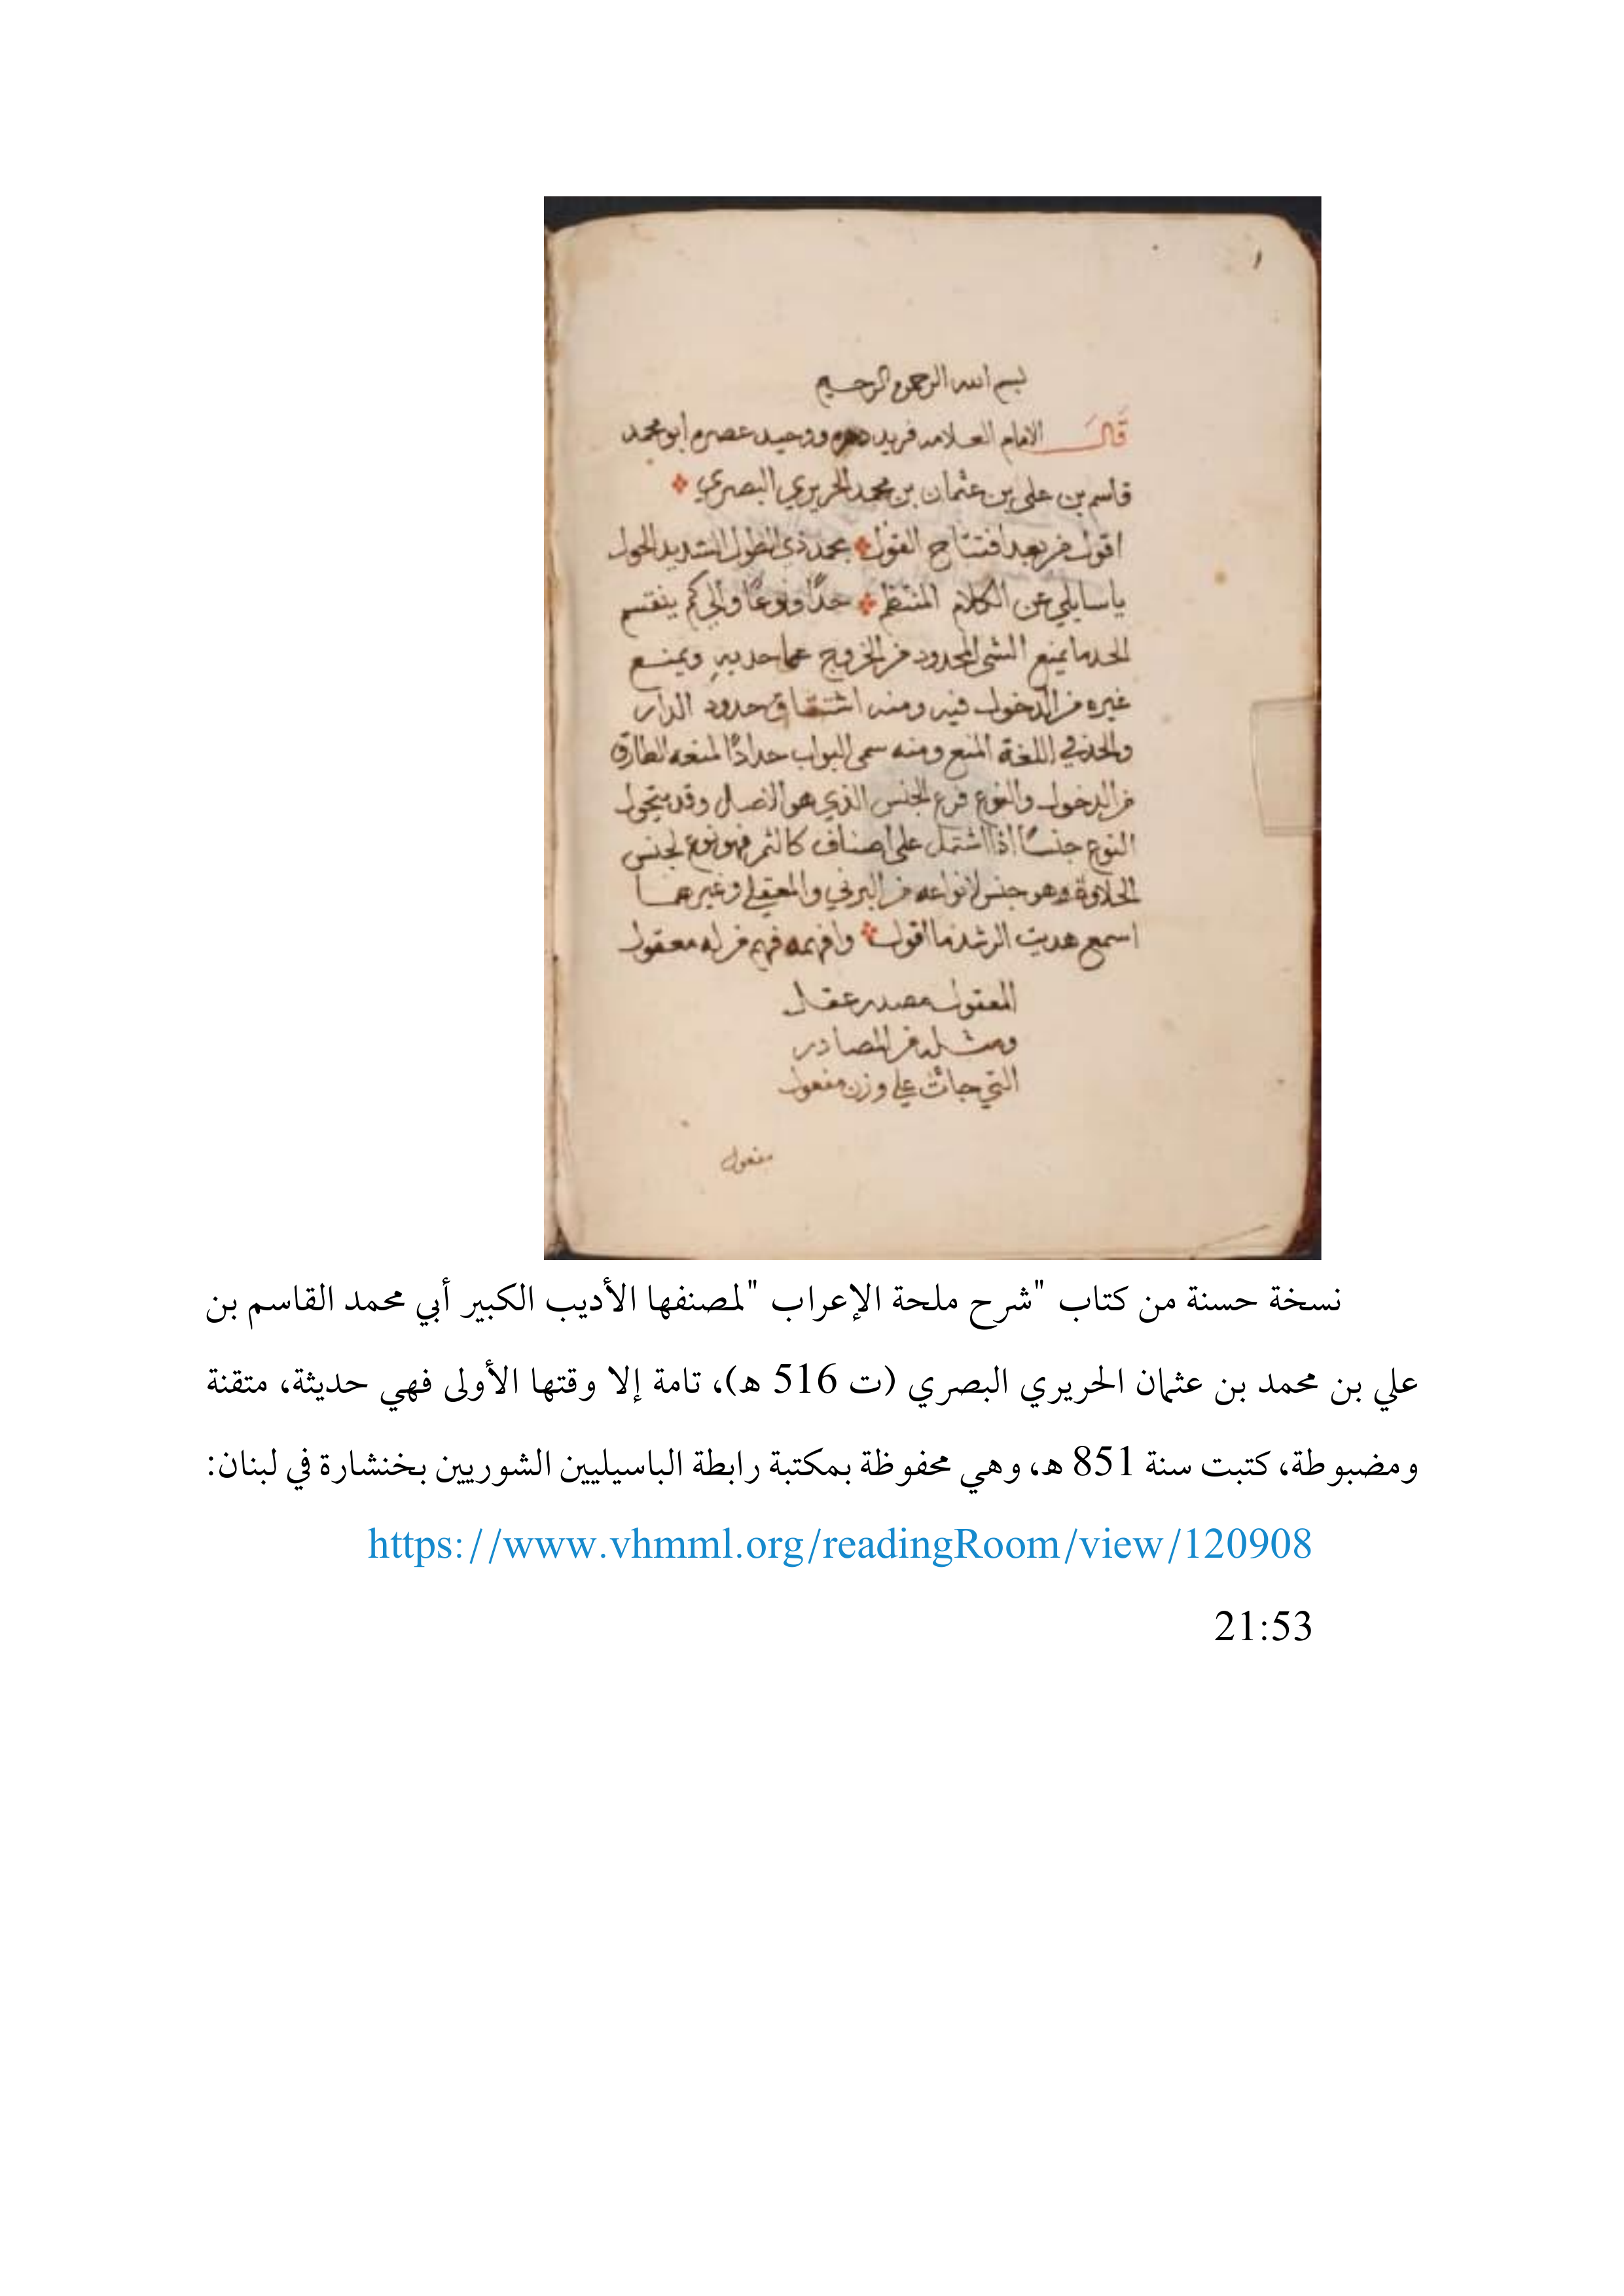 ١
بسم الله الرحمن الرحيم
قال الامام العلامه فريد دهره ووحيد عصره ابو محمد
قاسم بن على بن عثمان بن محمد الحريري البصري
اقول من بعد افتتاح القول بحمد ذي الطول الشديد الحول
ياسايلي عن الكلام المنتظم حدًا ونوعًا والى كم ينقسم
الحد ما يمنع الشى المحدود من الخروج عما حد بهِ ويمنع
غيره من الدخول فيه ومنه اشتقاق حدود الدار
والحد في اللغة المنع ومنه سمى البواب حدادًا لمنعه الطارق
من الدخول والنوع فرع الجنس الذي هو الاصل وقد يتحول
النوع جنسًا اذا اشتمل على اصناف كالثمر فهو نوع لجنس
الحلاوة وهو جنس لانواعه من البرني والمعقلي وغيرهما
اسمع هديت الرشد ما اقول وافهمه فهم من له معقول
المعقول مصدر عقل
ومثله من المصادر
التي جائت علي وزن مفعول
مفعول
نسخة حسنة من كتاب "شرح ملحة الإعراب "لمصنفها الأديب الكبير أبي محمد القاسم بن
علي بن محمد بن عثمان الحريري البصري (ت 516 هـ)، تامة إلا وقتها الأولى فهي حديثة، متقنة
ومضبوطة، كتبت سنة 851 هـ، وهي محفوظة بمكتبة رابطة الباسيليين الشوريين بخنشارة في لبنان:
https://www.vhmml.org/readingRoom/view/120908
21:53